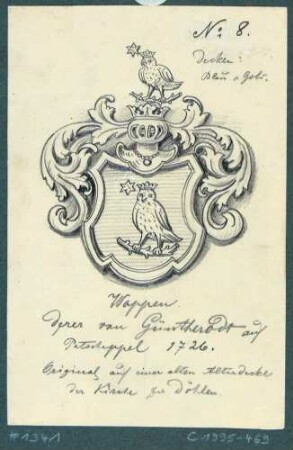 No: 8.
Decken:
Blau u Gold.
Wappen
derer von Güntherodt auf
Potschappel 1726.
Original auf einer alten Altardecke
der Kirche zu Döhlen.
#1341
C 1995-469